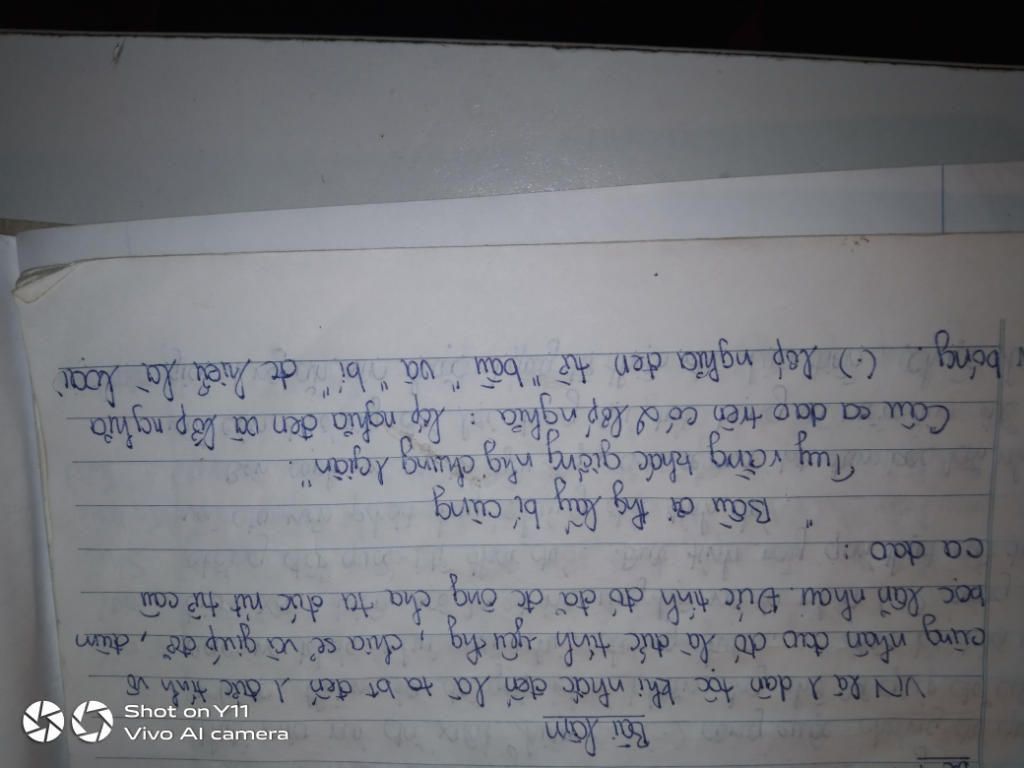 Bài làm
VN là 1 dân tộc khi nhắc đến là ta bt đến 1 đức tính vô
cùng nhân đạo đó là đức tính yêu thg, chia sẻ và giúp đỡ, đùm
bọc lẫn nhau. Đức tính đó đã đc ông cha ta đúc rút từ câu
ca dao:
"Bầu ơi thg lấy bí cùng
Tuy rằng khác giống nhg chung 1 giàn"
Câu ca dao trên có 2 lớp nghĩa: lớp nghĩa đen và lớp nghĩa
bóng. (.) Lớp nghĩa đen từ "bầu" và "bí" đc hiểu là loại
Shot on Y11
Vivo AI camera